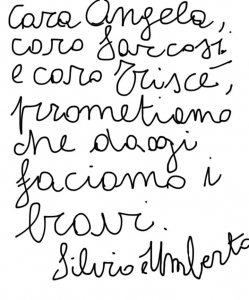 cara Angela,
caro Sarcosì
e caro Triscé,
prometiamo
che daogi
faciamo i
bravi.
Silvio e Umberto